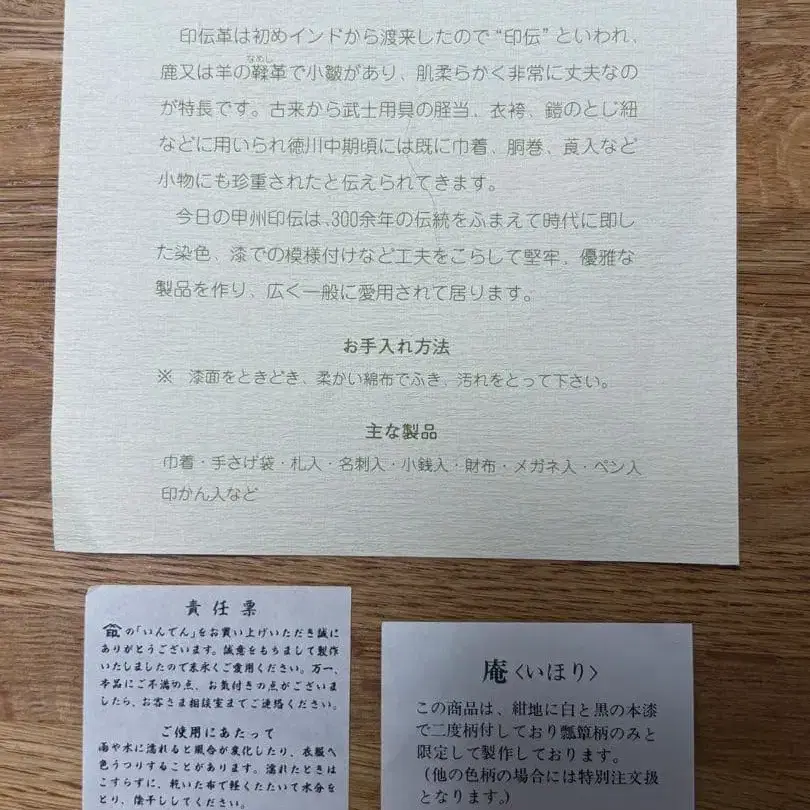 印伝革は初めインドから渡来したので“印伝”といわれ、
鹿又は羊の鞣革で小皺があり、肌柔らかく非常に丈夫なの
なめし
が特長です。古来から武士用具の胫当、衣袴、鎧のとじ紐
などに用いられ徳川中期頃には既に巾着、胴巻、莨入など
小物にも珍重されたと伝えられてきます。
今日の甲州印伝は、300余年の伝統をふまえて時代に即し
た染色、漆での模様付けなど工夫をこらして堅牢、優雅な
製品を作り、広く一般に愛用されて居ります。
お手入れ方法
※ 漆面をときどき、柔かい綿布でふき、汚れをとって下さい。
主な製品
巾着・手さげ袋・札入・名刺入・小銭入・財布・メガネ入・ペン入
印かん入など
責任票
の「いんでん」をお買い上げいただき誠に
ありがとうございます。誠意をもちまして製作
いたしましたので末永くご愛用ください。万一、
本品にご不満の点、お気付きの点がございま
したら、お客さま相談室までご連絡ください。
ご使用にあたって
雨や水に濡れると風合が変化したり、衣服へ
色うつりすることがあります。濡れたときは
こすらずに、乾いた布で軽くたたいて水分を
とり、陰干ししてください。
庵〈いほり〉
この商品は、紺地に白と黒の本漆
で二度柄付しており瓢箪柄のみと
限定して製作しております。
（他の色柄の場合には特別注文扱
となります。）